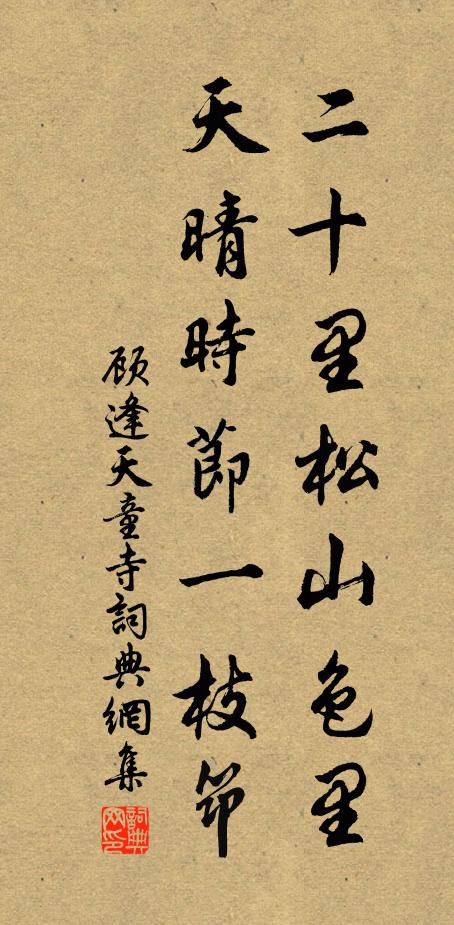 二十里松山色里
天晴時節一枝笻
顾逢天童寺詞典網集
詞典网印